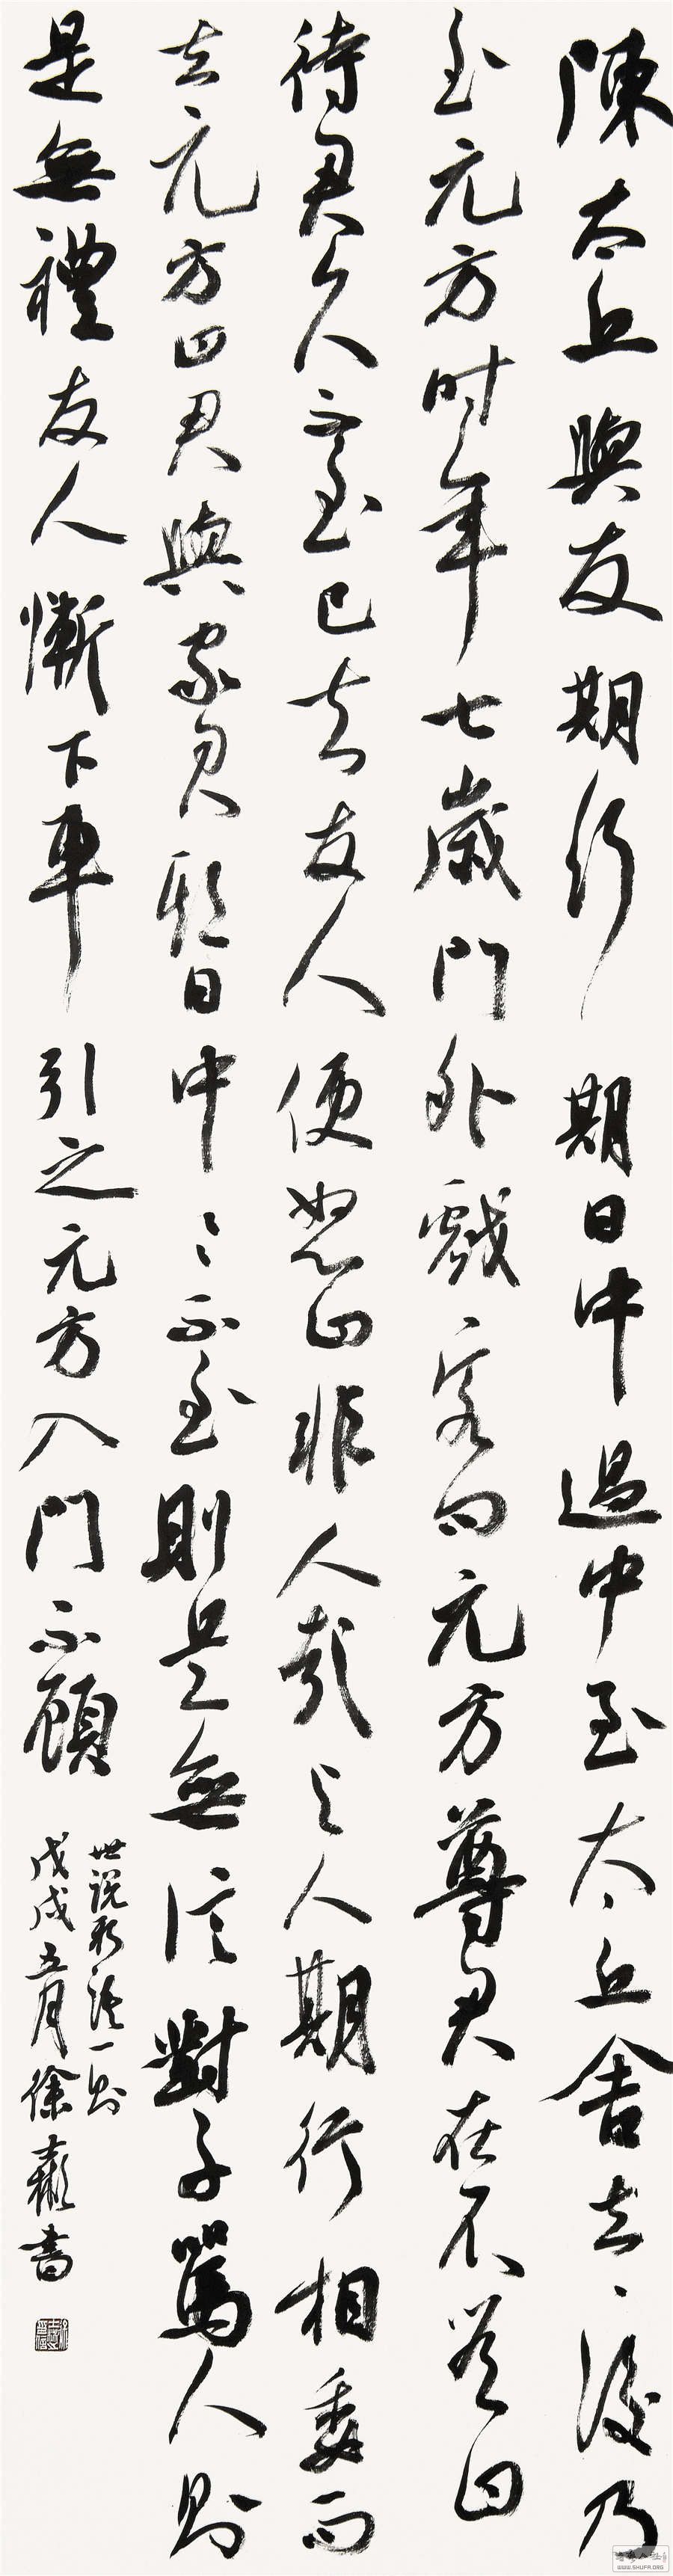 陳太丘與友期行期日中過中至太丘舍去々後乃
至元方时年七歲門外戲客問元方尊君在不答曰
待君久不至已去友人便怒曰非人哉與人期行相委而
去元方曰君與家君期日中々不至則是無信對子罵人則
是無禮友人慚下車引之元方入門不顧
世說新語一則
戊戌五月徐書
WWW.SHUFA.ORG